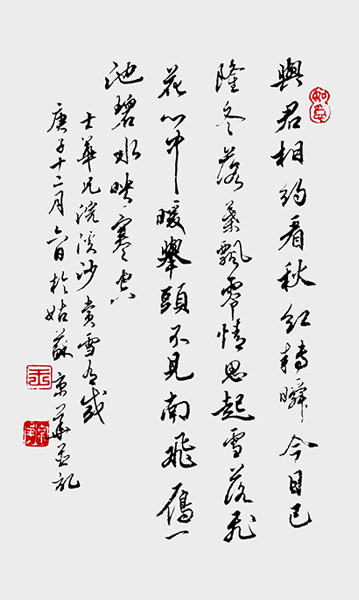 與君相約看秋紅轉瞬今日已
隆冬落葉飄零情思起雪落飛
花心中暖舉頭不見南飛雁一
池碧水映寒空
士華兄浣溪沙賞雪有感
庚子十二月六日於姑蘇京華並記